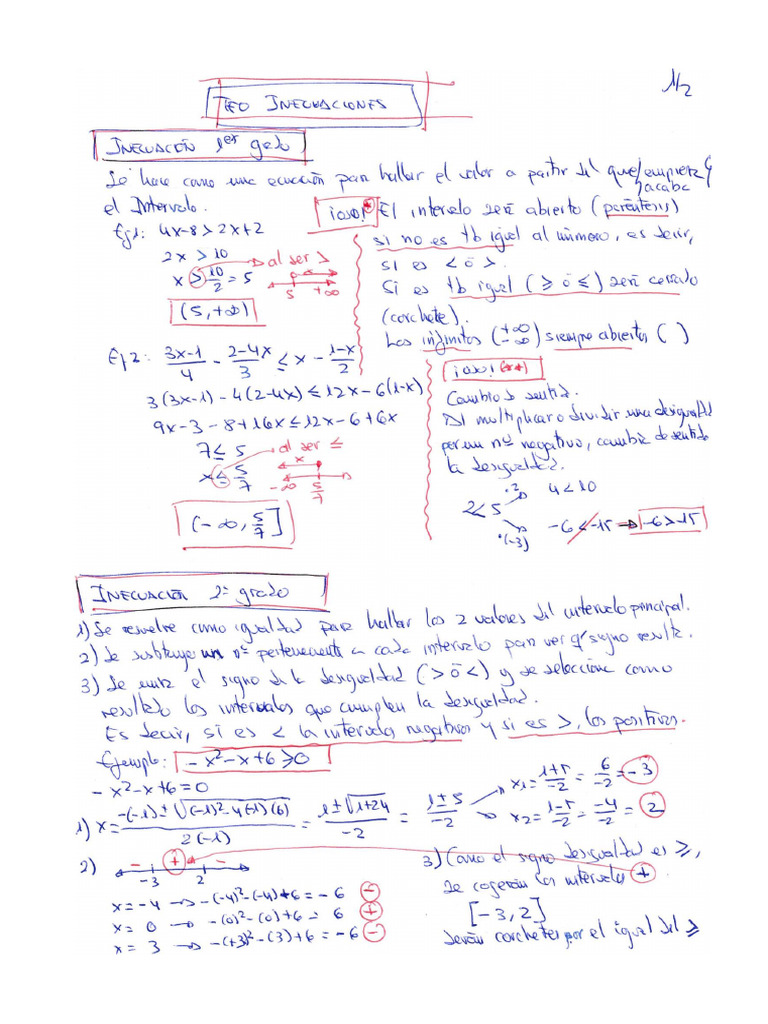 1/2
TEO INECUACIONES
INECUACIÓN 1er grado
Se hace como una ecuación para hallar el valor a partir del que empieza y
acaba
el Intervalo.
¡ojo! * El intervalo será abierto (paréntesis)
si no es tb igual al número, es decir,
si es < ó >.
Si es tb igual (≥ ó ≤) será cerrado
(corchete).
Los infinitos (+∞ -∞) siempre abiertos ( )
Ej1: 4x-8>2x+2
2x > 10
al ser >
x > 10/2 = 5
5 +∞
(5,+∞)
Ej2: (3x-1)/4 - (2-4x)/3 ≤ x - (1-x)/2
3(3x-1)-4(2-4x)≤12x-6(1-x)
9x-3-8+16x≤12x-6+6x
7≤5
al ser ≤
x≤5/7
x
-∞ 5/7
(-∞, 5/7]
¡ojo! (**)
Cambio de sentido.
Al multiplicar o dividir una desigualdad
por un nº negativo, cambia de sentido
la desigualdad.
2<5
·2 4<10
·(-3) -6<-15 → -6>-15
INECUACIÓN 2º grado
1) Se resuelve como igualdad para hallar los 2 valores del intervalo principal.
2) Se substituye un nº perteneciente a cada intervalo para ver q' signo resulta.
3) Se mira el signo de la desigualdad (> ó <) y se selecciona como
resultado los intervalos que cumplen la desigualdad.
Es decir, si es < los intervalos negativos y si es >, los positivos.
Ejemplo: -x²-x+6≥0
-x²-x+6=0
1) x = (-(-1)±√((-1)²-4(-1)(6)))/(2(-1)) = (1±√(1+24))/(-2) = (1±5)/(-2)
x1=(1+5)/(-2)=6/(-2)=-3
x2=(1-5)/(-2)=(-4)/(-2)=2
2) - + -
-3 2
x=-4 → -(-4)²-(-4)+6=-6 -
x= 0 → -(0)²-(0)+6= 6 +
x= 3 → -(+3)²-(3)+6=-6 -
3) Como el signo desigualdad es ≥,
se cogerán los intervalos +
[-3,2]
Serán corchetes por el igual del ≥